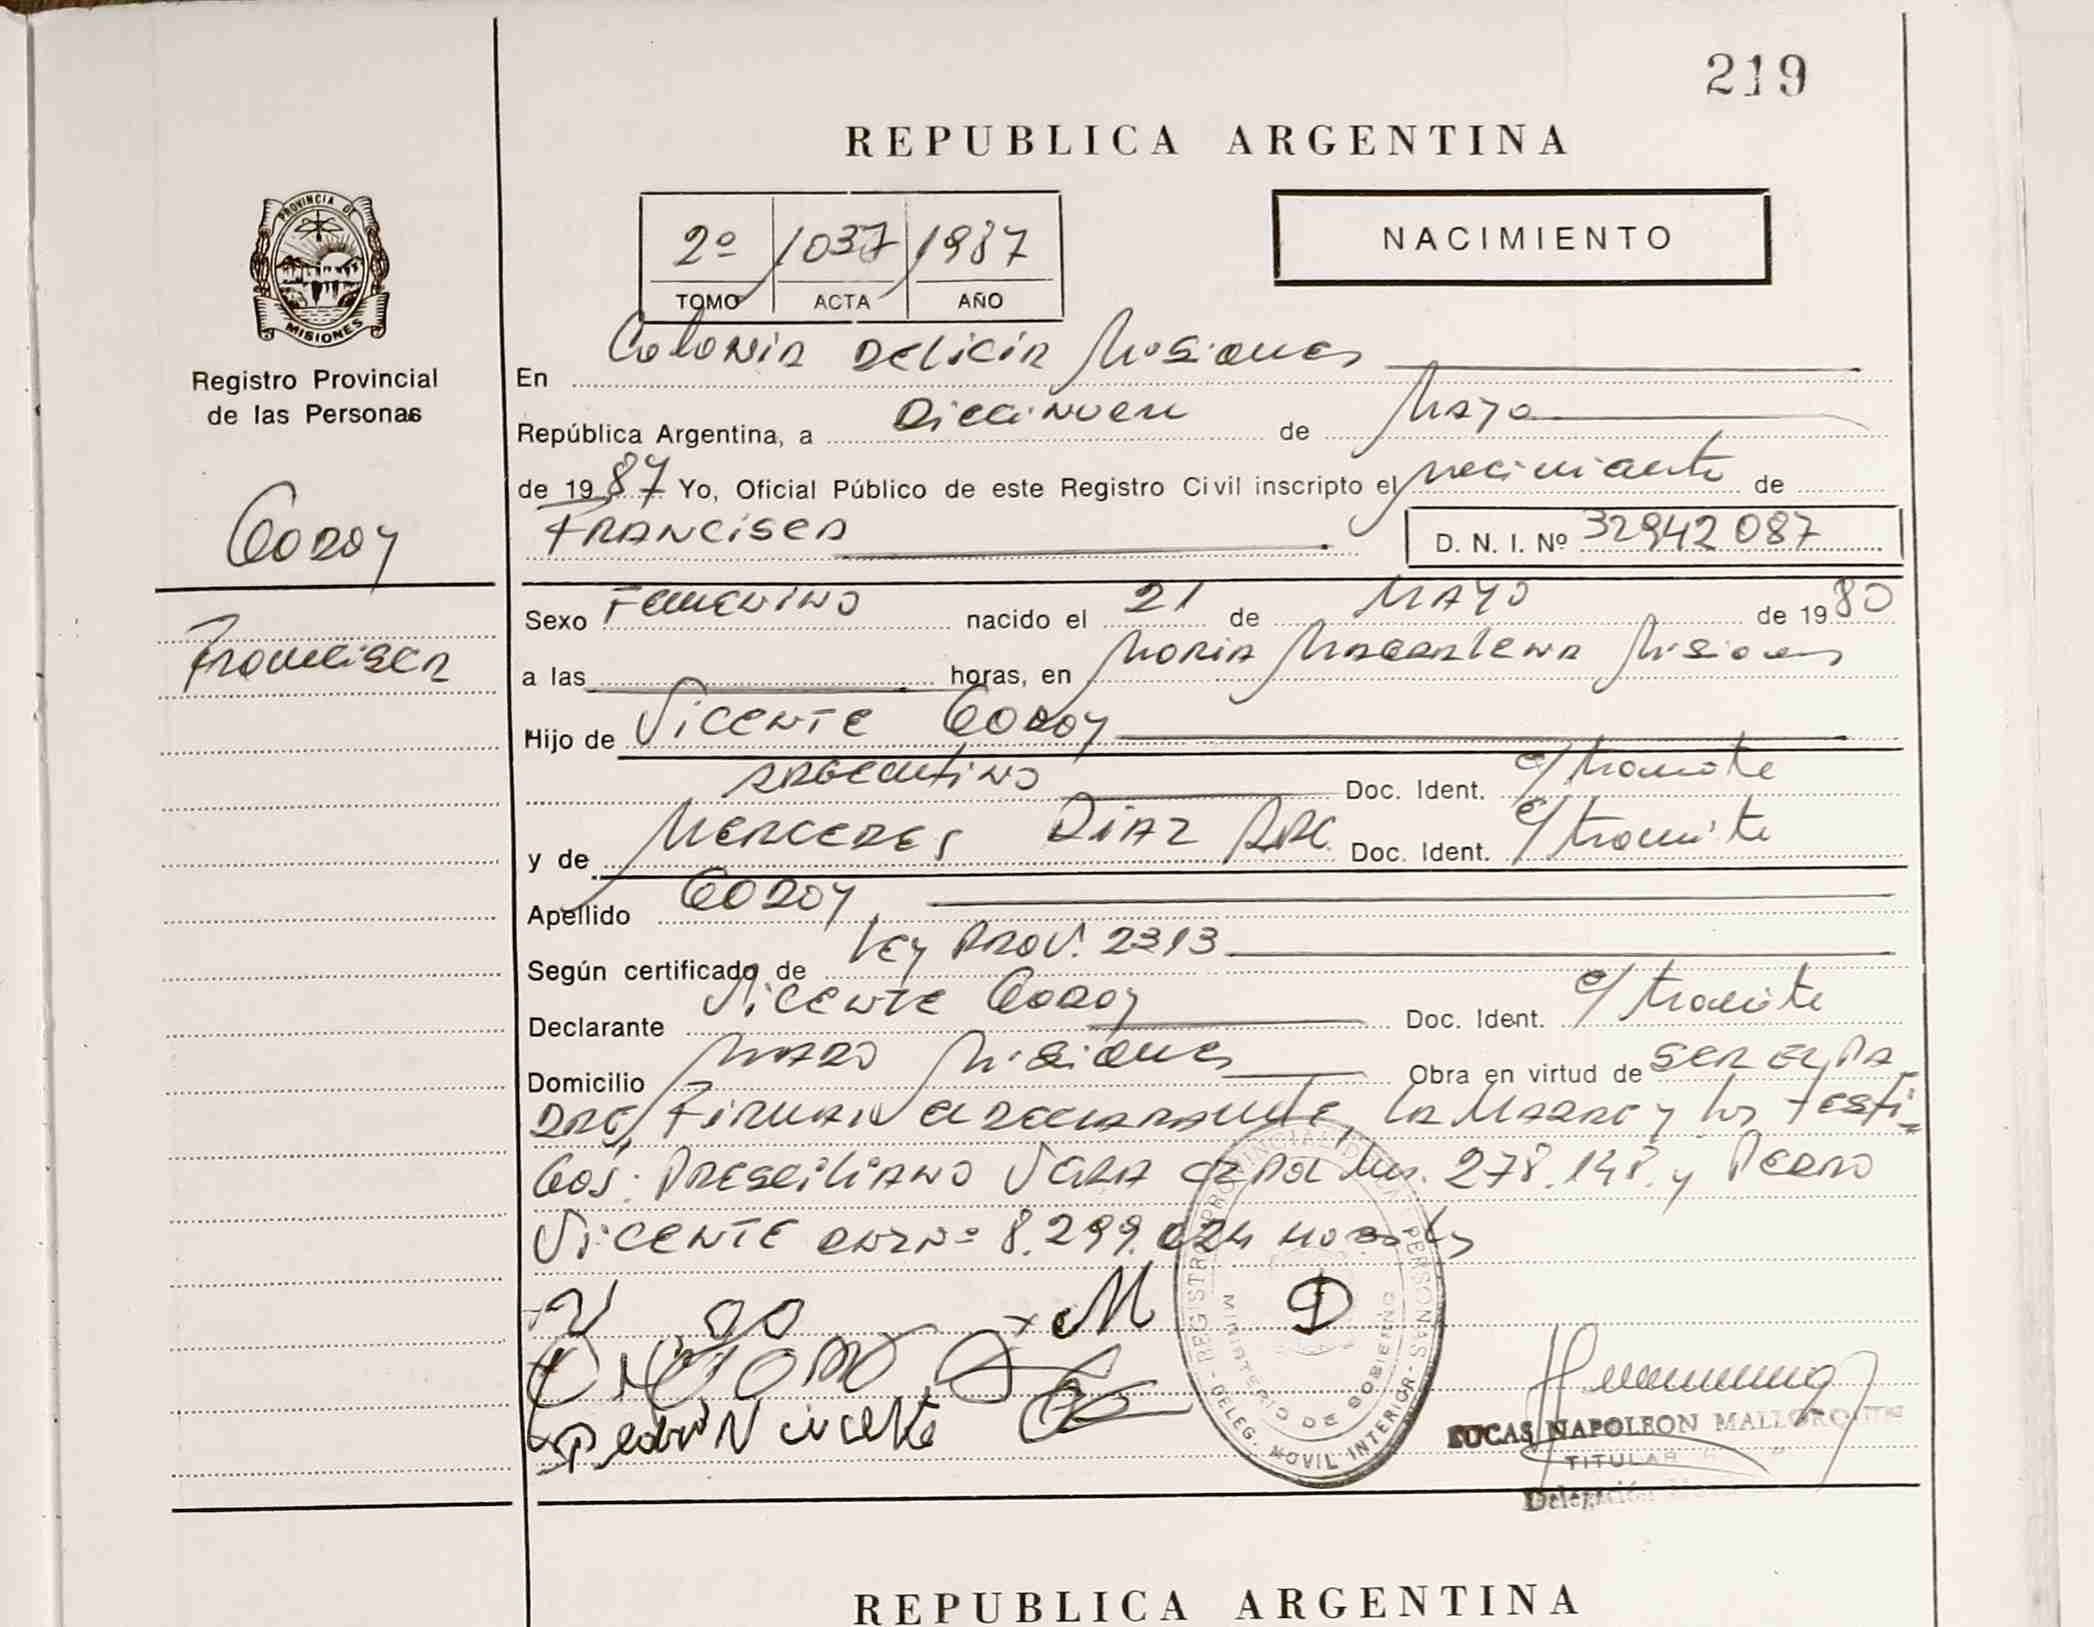 219
REPUBLICA ARGENTINA
2º 1037 1987
TOMO ACTA AÑO
NACIMIENTO
PROVINCIA DE MISIONES
Registro Provincial
de las Personas
Godoy
Francisca
En Colonia Delicia Misiones
República Argentina, a Diecinueve de Mayo
de 1987 Yo, Oficial Público de este Registro Civil inscripto el nacimiento de
Francisca D. N. I. Nº 32942087
Sexo Femenino nacido el 21 de Mayo de 1980
a las horas, en Maria Magdalena Misiones
Hijo de Vicente Godoy
argentino Doc. Ident. e/tramite
y de Mercedes Diaz Arg. Doc. Ident. e/tramite
Apellido Godoy
Según certificado de Ley Prov. 2313
Declarante Vicente Godoy Doc. Ident. e/tramite
Domicilio Misiones Obra en virtud de ser el pa
dre, Firman el declarante, la Madre y los testi-
gos: Vera 278.148. y Pedro
Vicente 8.299.024
Pedro Vicente
REGISTRO PROVINCIAL DE LAS PERSONAS
MINISTERIO DE GOBIERNO
DELEG. MOVIL INTERIOR
D
LUCAS NAPOLEON MALLORQUIN
TITULAR
Delegación
REPUBLICA ARGENTINA